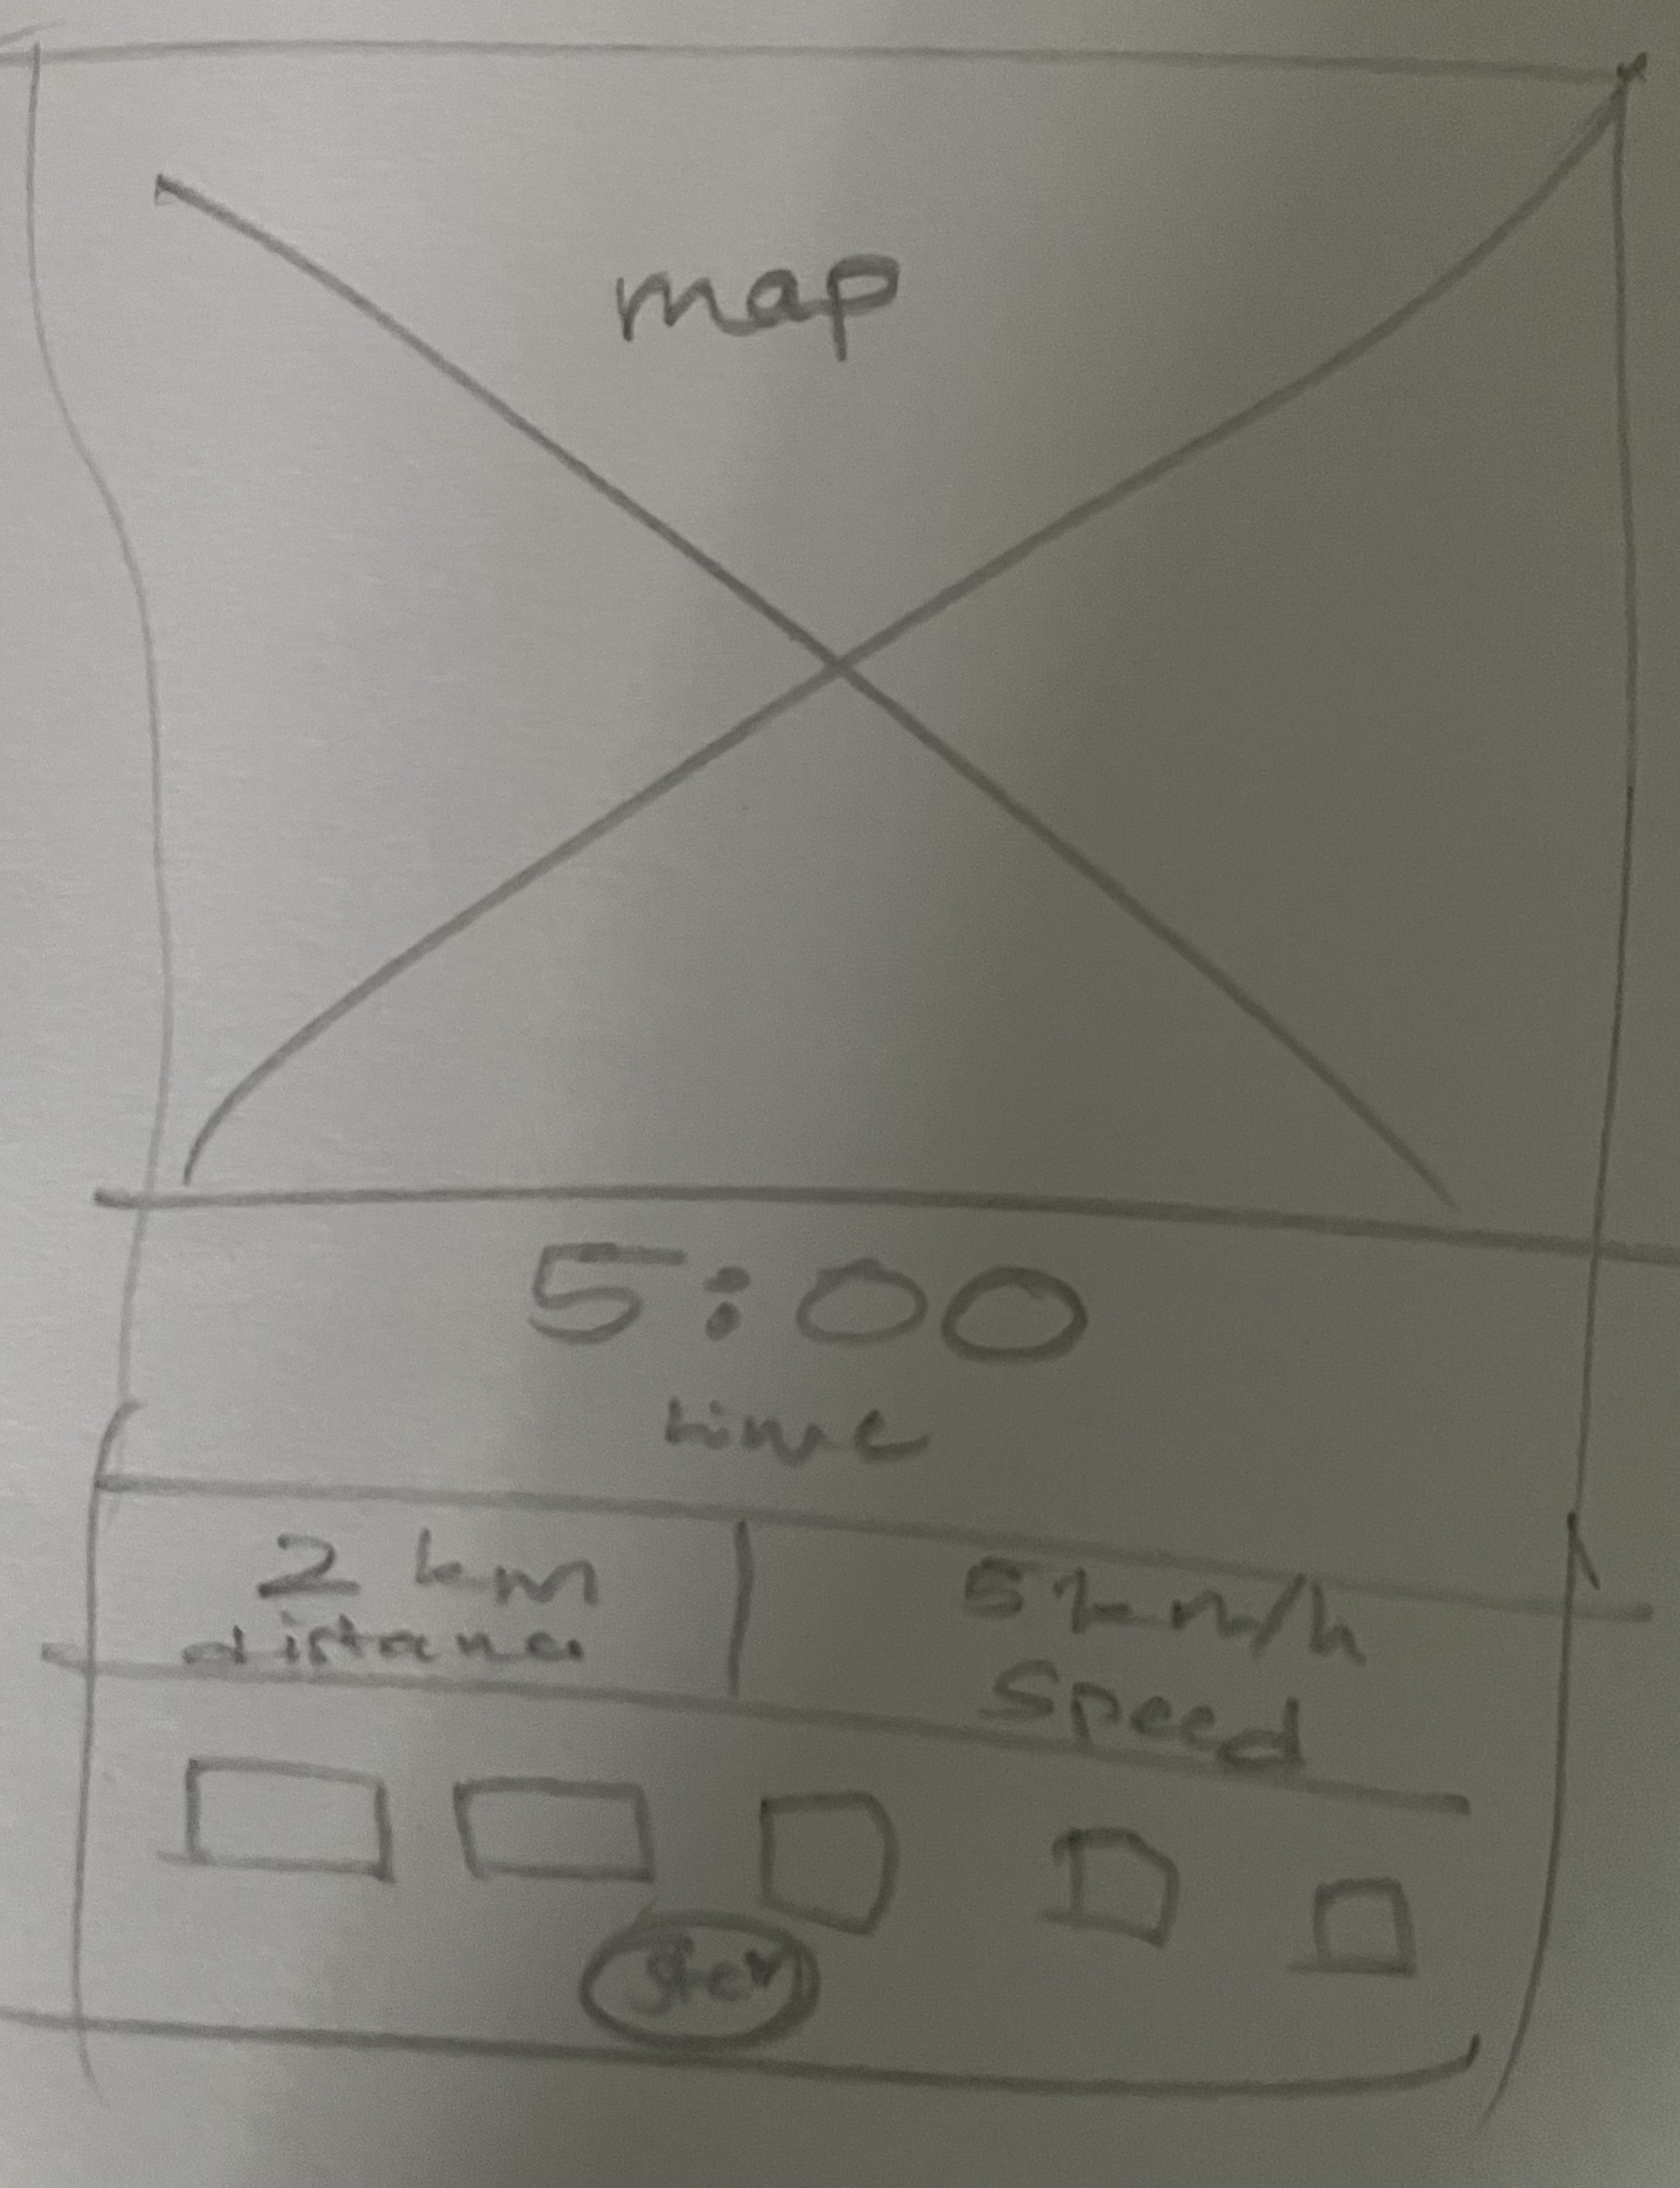 map
5:00
time
2 km
distance
5 km/h
Speed